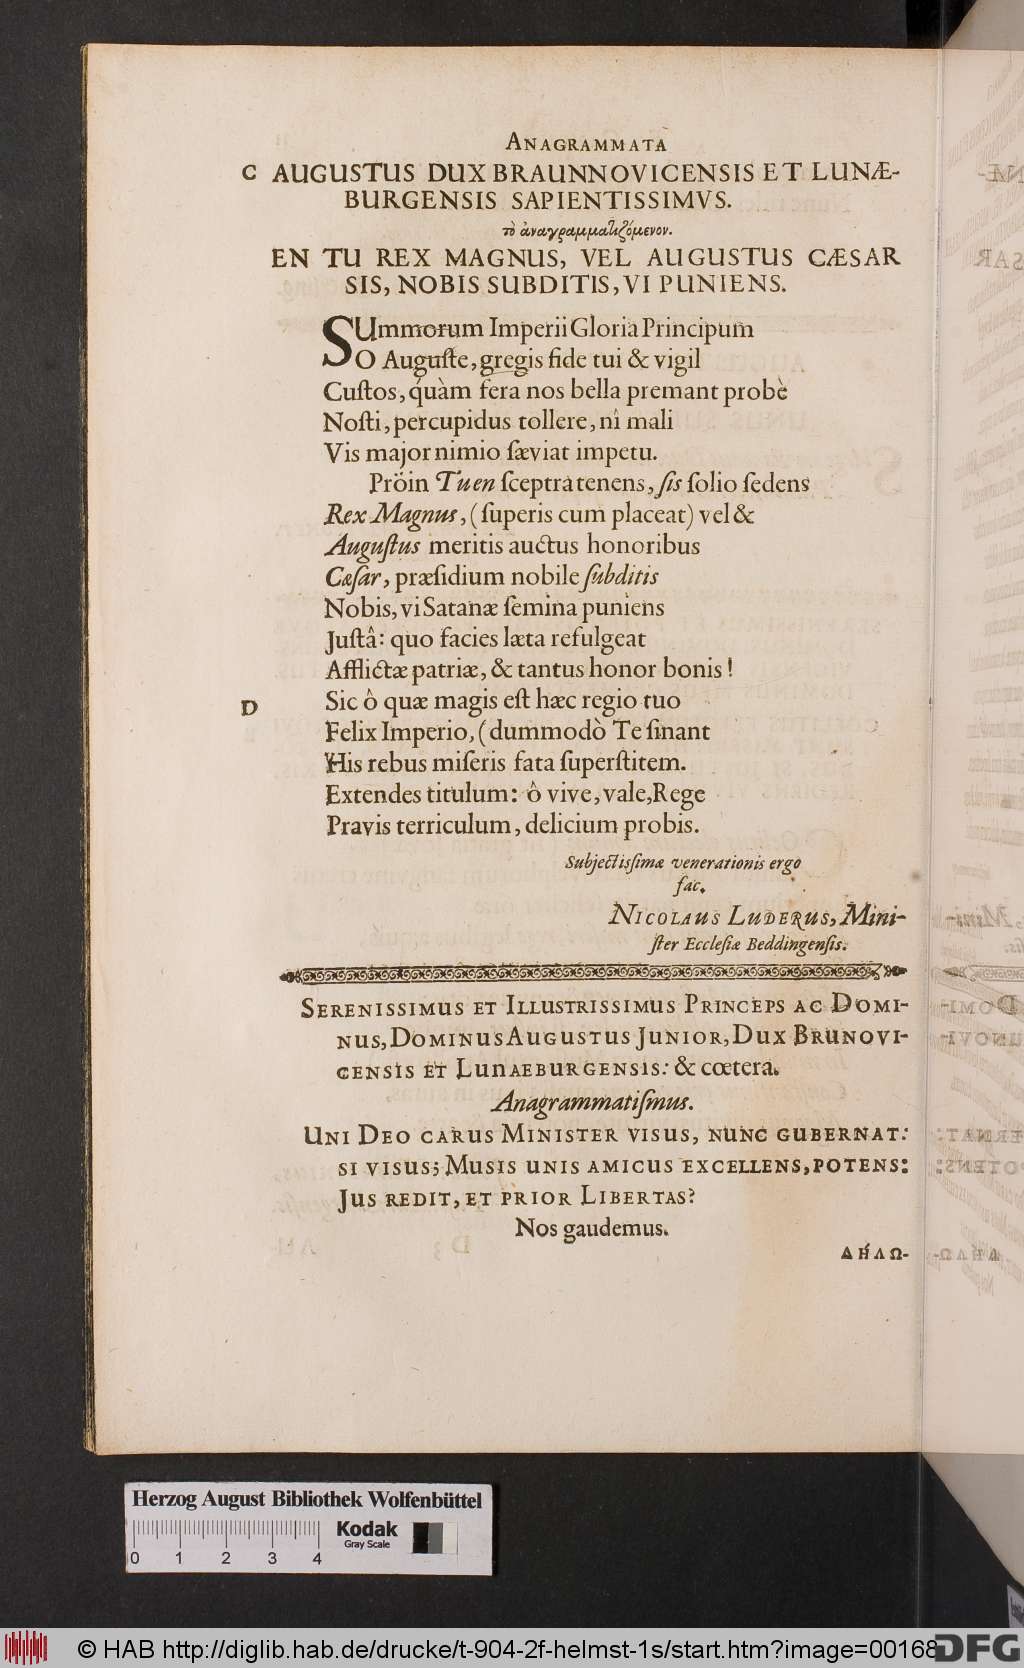 ANAGRAMMATA
C AUGUSTUS DUX BRAUNNOVICENSIS ET LUNÆ-
BURGENSIS SAPIENTISSIMVS.
τὸ ἀναγραμματιζόμενον.
EN TU REX MAGNUS, VEL AUGUSTUS CÆSAR
SIS, NOBIS SUBDITIS, VI PUNIENS.
SUmmorum Imperii Gloria Principum
O Auguſte, gregis fide tui & vigil
Cuſtos, quàm fera nos bella premant probè
Noſti, percupidus tollere, nî mali
Vis major nimio ſæviat impetu.
Pröin Tu en ſceptra tenens, ſis ſolio ſedens
Rex Magnus, (ſuperis cum placeat) vel &
Auguſtus meritis auctus honoribus
Cæſar, præſidium nobile ſubditis
Nobis, vi Satanæ ſemina puniens
Juſtâ: quo facies læta refulgeat
Afflictæ patriæ, & tantus honor bonis!
D Sic ô quæ magis eſt hæc regio tuo
Felix Imperio, (dummodò Te ſinant
His rebus miſeris fata ſuperſtitem.
Extendes titulum: ô vive, vale, Rege
Pravis terriculum, delicium probis.
Subjectiſſimæ venerationis ergo
fac.
NICOLAUS LUDERUS, Mini-
ſter Eccleſiæ Beddingenſis.
SERENISSIMUS ET ILLUSTRISSIMUS PRINCEPS AC DOMI-
NUS, DOMINUS AUGUSTUS JUNIOR, DUX BRUNOVI-
CENSIS ET LUNAEBURGENSIS: & cœtera.
Anagrammatiſmus.
UNI DEO CARUS MINISTER VISUS, NUNC GUBERNAT:
SI VISUS; MUSIS UNIS AMICUS EXCELLENS, POTENS:
JUS REDIT, ET PRIOR LIBERTAS?
Nos gaudemus.
ΔΉΛΩ-
Herzog August Bibliothek Wolfenbüttel
Kodak
Gray Scale
0 1 2 3 4
© HAB http://diglib.hab.de/drucke/t-904-2f-helmst-1s/start.htm?image=00168
DFG